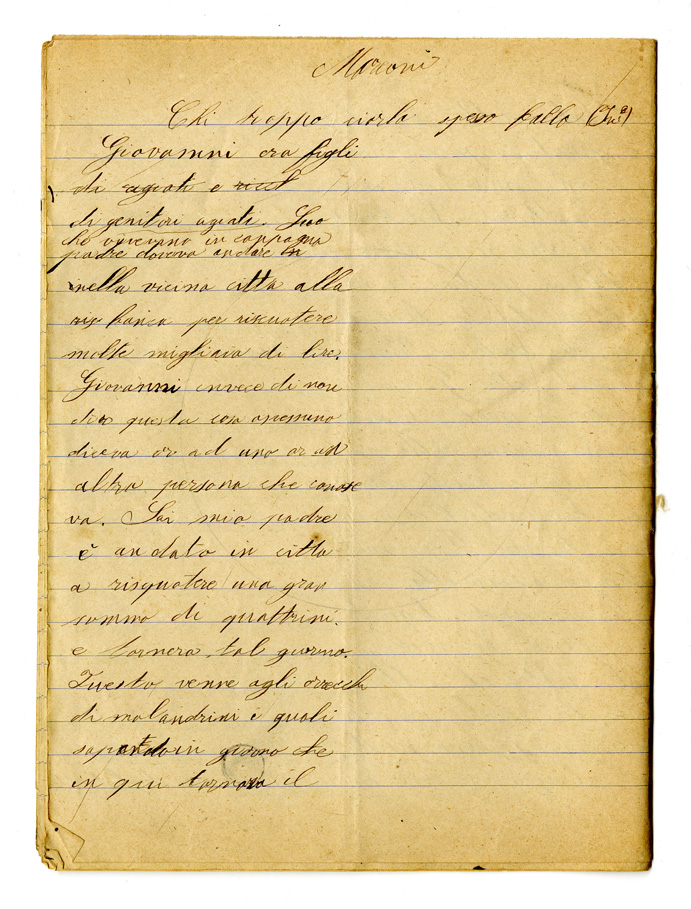 Marconi
Chi troppo ciarla spesso falla
Giovanni era figli
di agiati e ricch
di genitori agiati. Suo
che vivevano in campagna
padre doveva andare in
nella vicina città alla
ris banca per riscuotere
molte migliaia di lire.
Giovanni invece di non
dire questa cosa a nessuno
diceva or ad uno or ad un
altra persona che conosce
va. Sai mio padre
è andato in città
a risquotere una gran
somma di quattrini.
e tornerà tal giorno.
Questo venne agli orecchi
di malandrini i quali
sapendo in giorno che
in qui tornava il